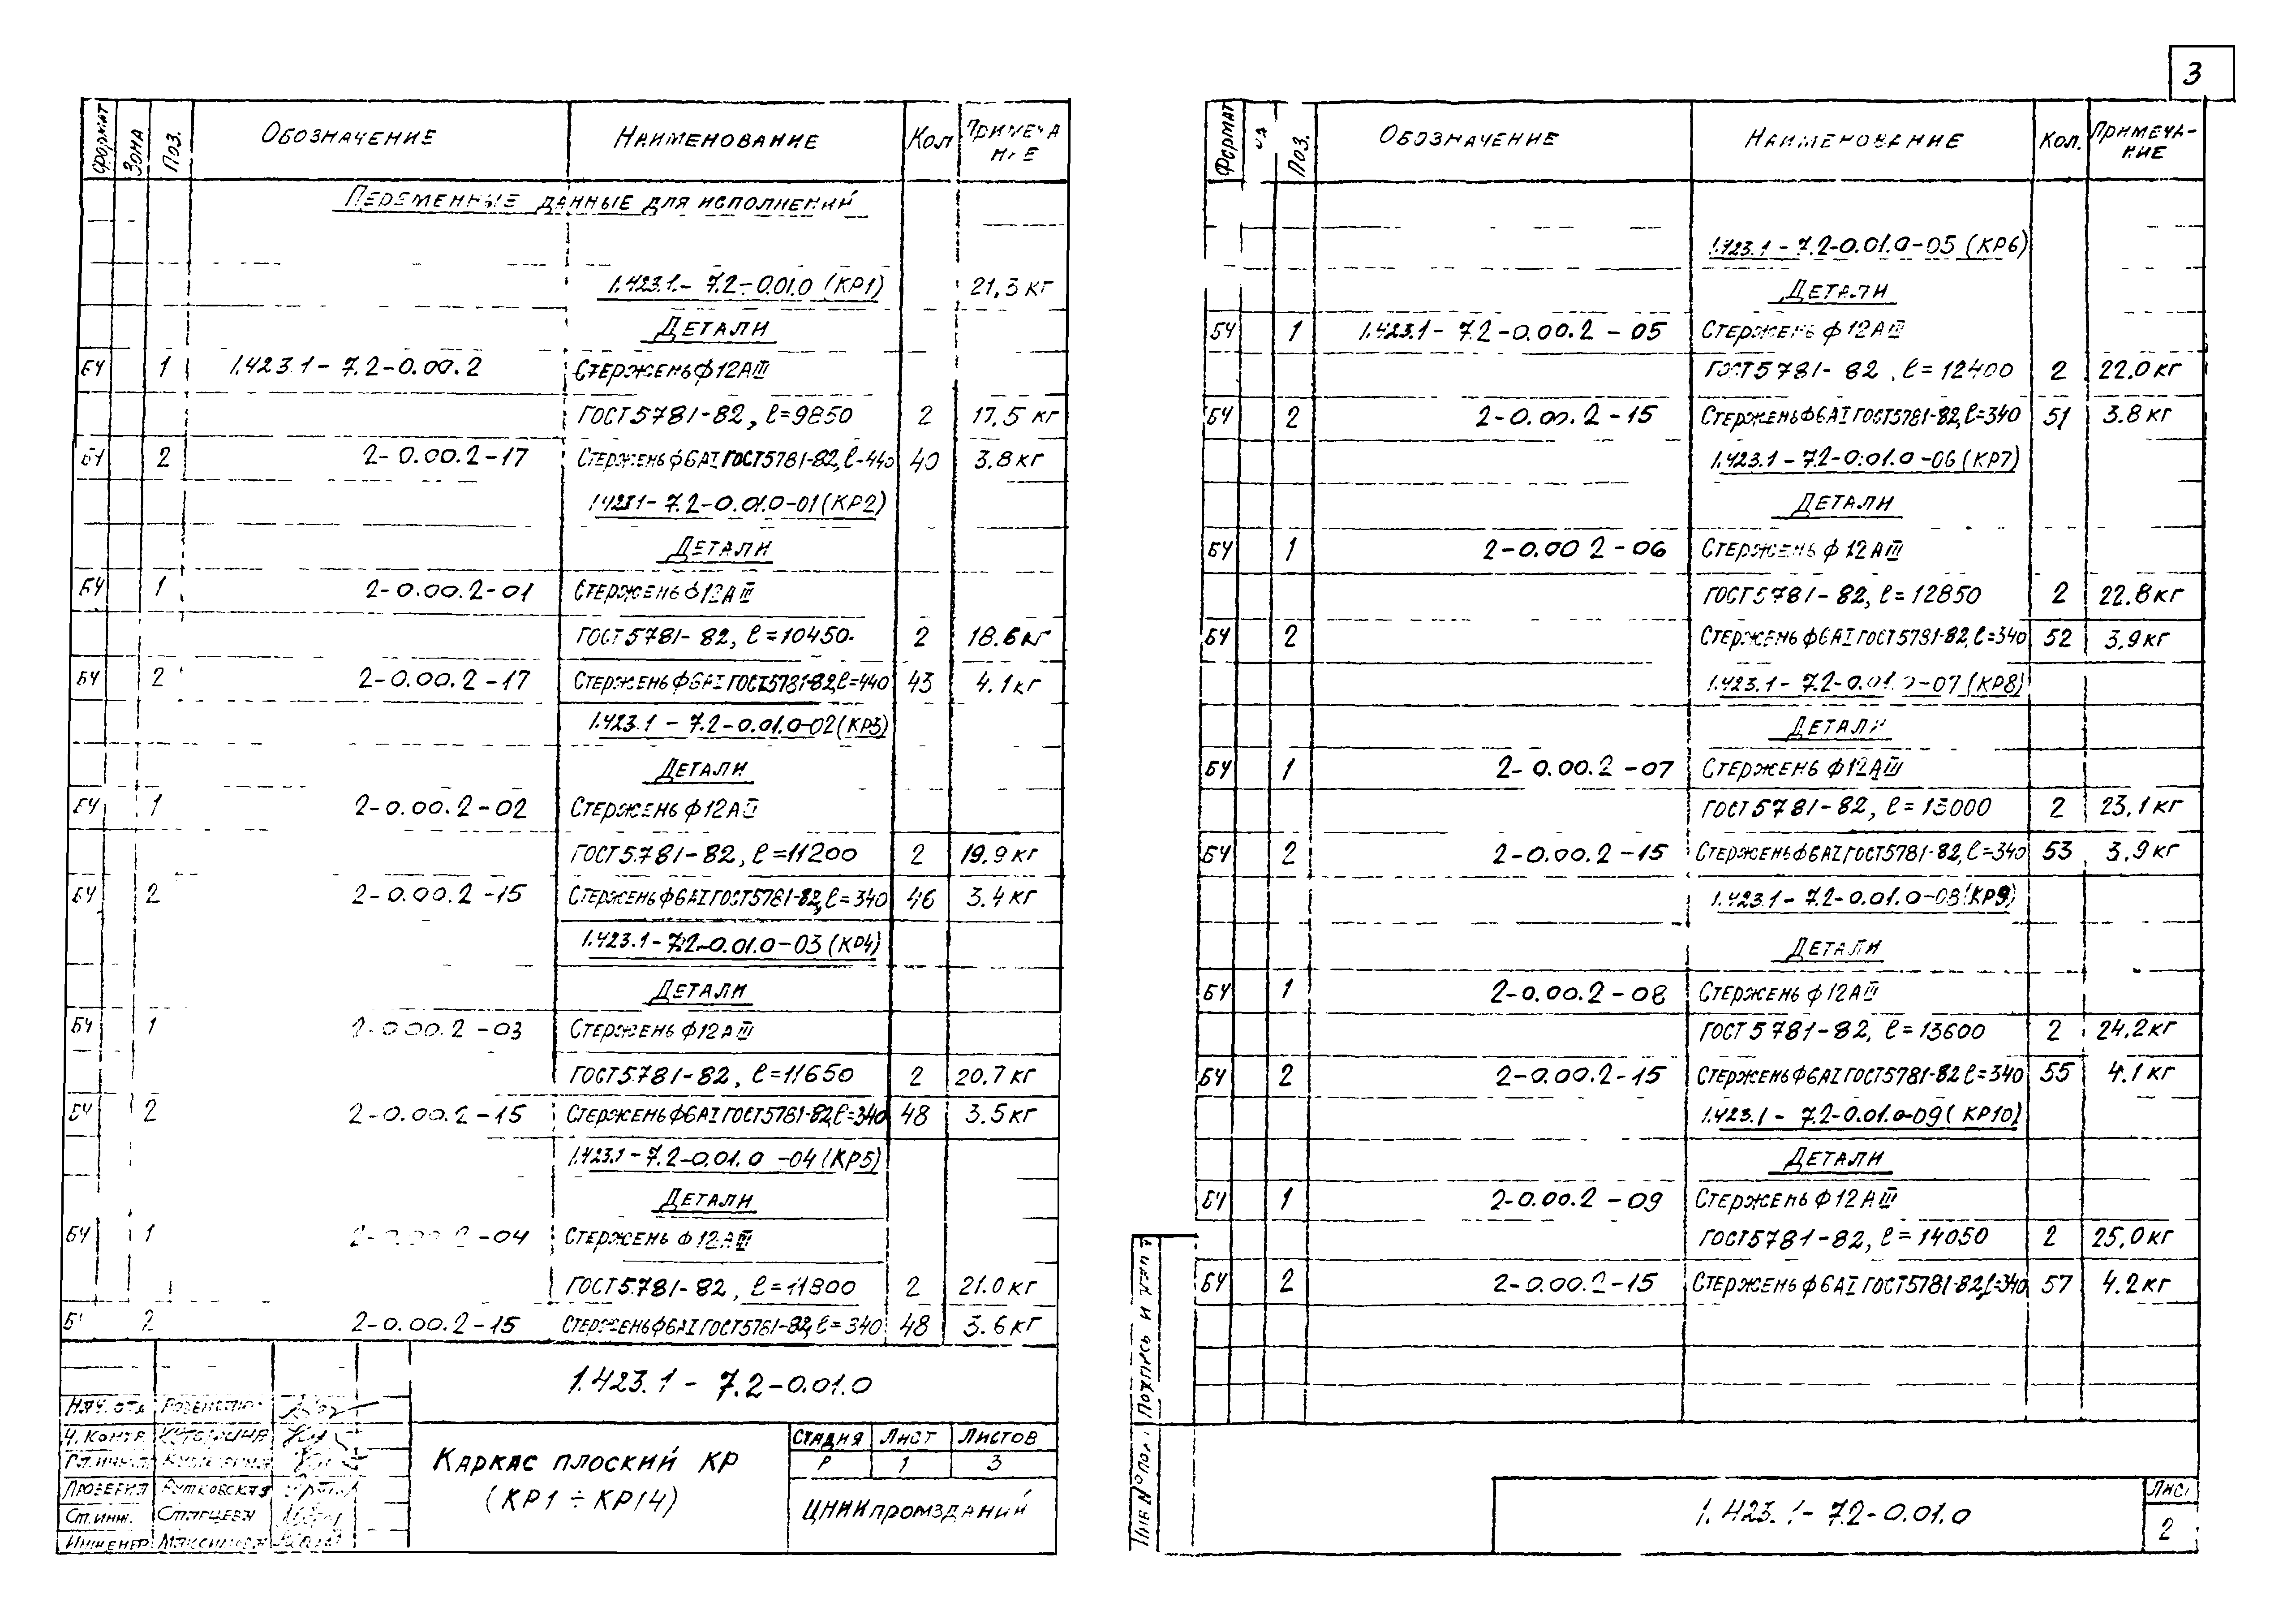 3
ФОРМАТ ЗОНА ПОЗ. ОБОЗНАЧЕНИЕ НАИМЕНОВАНИЕ КОЛ ПРИМЕЧА
НИЕ
ПЕРЕМЕННЫЕ ДАННЫЕ ДЛЯ ИСПОЛНЕНИЙ
1.423.1- 7.2-0.01.0 (КР1) 21,3 кг
ДЕТАЛИ
БЧ 1 1.423.1- 7.2-0.00.2 СТЕРЖЕНЬ ф12АIII
ГОСТ 5781-82, ℓ=9850 2 17.5 кг
БЧ 2 2-0.00.2-17 СТЕРЖЕНЬ ф6АI ГОСТ5781-82, ℓ-440 40 3.8 кг
1.423.1- 7.2-0.01.0-01 (КР2)
ДЕТАЛИ
БЧ 1 2-0.00.2-01 СТЕРЖЕНЬ ф12АIII
ГОСТ 5781-82, ℓ=10450. 2 18.6 кг
БЧ 2 2-0.00.2-17 СТЕРЖЕНЬ ф6АI ГОСТ5781-82, ℓ=440 43 4.1 кг
1.423.1 - 7.2-0.01.0-02 (КР3)
ДЕТАЛИ
БЧ 1 2-0.00.2-02 СТЕРЖЕНЬ ф12А
ГОСТ 5781-82, ℓ=11200 2 19.9 кг
БЧ 2 2-0.00.2-15 СТЕРЖЕНЬ ф6АI ГОСТ5781-82, ℓ=340 46 3.4 кг
1.423.1-7.2-0.01.0-03 (КР4)
ДЕТАЛИ
БЧ 1 2-0.00.2-03 СТЕРЖЕНЬ ф12АIII
ГОСТ 5781-82, ℓ=11650 2 20.7 кг
БЧ 2 2-0.00.2-15 СТЕРЖЕНЬ ф6АI ГОСТ5781-82, ℓ=340 48 3.5 кг
1.423.1-7.2-0.01.0 -04 (КР5)
ДЕТАЛИ
БЧ 1 2-0.00.2-04 СТЕРЖЕНЬ ф12АIII
ГОСТ 5781-82, ℓ=11800 2 21.0 кг
2 2-0.00.2-15 СТЕРЖЕНЬ ф6АI ГОСТ5781-82, ℓ=340 48 3.6 кг
1.423.1 - 7.2-0.01.0
НАЧ. ОТД
КАРКАС ПЛОСКИЙ КР
(КР1 ÷ КР14)
СТАДИЯ ЛИСТ ЛИСТОВ
Р 1 3
ЦНИИПРОМЗДАНИЙ
Н. КОНТР.
ПРОВЕРИЛ РУТКОВСКАЯ
СТ. ИНЖ. СТАРЦЕВА
ИНЖЕНЕР
ФОРМАТ ПОЗ. ОБОЗНАЧЕНИЕ НАИМЕНОВАНИЕ КОЛ. ПРИМЕЧА-
НИЕ
1.423.1 - 7.2-0.01.0-05 (КР6)
ДЕТАЛИ
БЧ 1 1.423.1- 7.2-0.00.2 - 05 СТЕРЖЕНЬ ф12АIII
ГОСТ 5781-82, ℓ=12400 2 22.0 кг
БЧ 2 2-0.00.2-15 СТЕРЖЕНЬ ф6АI ГОСТ5781-82, ℓ=340 51 3.8 кг
1.423.1 - 7.2-0.01.0 -06 (КР7)
ДЕТАЛИ
БЧ 1 2-0.00 2-06 СТЕРЖЕНЬ ф12АIII
ГОСТ 5781-82, ℓ=12850 2 22.8 кг
БЧ 2 СТЕРЖЕНЬ ф6АI ГОСТ5781-82, ℓ=340 52 3.9 кг
1.423.1 - 7.2-0.01.0-07 (КР8)
ДЕТАЛИ
БЧ 1 2-0.00.2-07 СТЕРЖЕНЬ ф12АIII
ГОСТ 5781-82, ℓ=13000 2 23.1 кг
БЧ 2 2-0.00.2-15 СТЕРЖЕНЬ ф6АI ГОСТ5781-82, ℓ=340 53 3.9 кг
1.423.1 - 7.2-0.01.0-08 (КР9)
ДЕТАЛИ
БЧ 1 2-0.00.2-08 СТЕРЖЕНЬ ф12АIII
ГОСТ 5781-82, ℓ=13600 2 24.2 кг
БЧ 2 2-0.00.2-15 СТЕРЖЕНЬ ф6АI ГОСТ5781-82 ℓ=340 55 4.1 кг
1.423.1 - 7.2-0.01.0-09 (КР10)
ДЕТАЛИ
БЧ 1 2-0.00.2-09 СТЕРЖЕНЬ ф12АIII
ГОСТ 5781-82, ℓ=14050 2 25.0 кг
БЧ 2 2-0.00.2-15 СТЕРЖЕНЬ ф6АI ГОСТ5781-82, ℓ=340 57 4.2 кг
ИНВ № ПОДЛ ПОДПИСЬ И ДАТА
1.423.1- 7.2-0.01.0
ЛИСТ
2